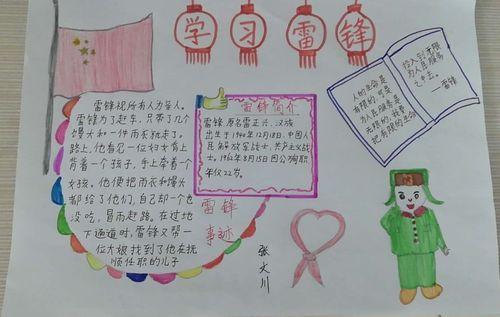 学习雷锋
雷锋视所有人为亲人。
雷锋为了赶车，只带了几个
馒头和一件雨衣就走了。
路上，他看见一位妇女背上
背着一个孩子，手上牵着一个
女孩。他便把雨衣和馒头
都给了他们，自己却一个也
没吃，冒雨赶路。在过地
下通道时，雷锋又帮一
位大娘找到了他在抚
顺任职的儿子
雷锋简介
雷锋，原名雷正兴，汉族
出生于1940年12月18日，中国人
民解放军战士，共产主义战
士。1962年8月15日因公殉职
年仅22岁。
雷锋
事迹
张文川
人的生命是
有限的，可是
为人民服务是
无限的，我要
把有限的生命
投入到无限
为人民服务
之中去。
雷锋